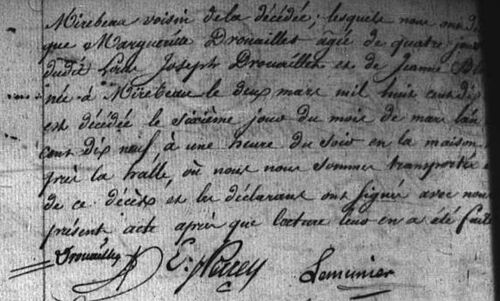 Mirebeau voisin de la décédée; lesquels nous ont dé
que Marguerite Drouaillet agée de quatre jou
dudit Louis Joseph Drouaillet et de Jeanne
née à Mirebeau le deux mars mil huit cent dix
est décédée le sixième jour du mois de mar l'an
cent dix neuf à une heure du soir en la maison
près la halle, où nous nous sommes transporté
de ce décès et les déclarant ont signé avec nou
présent acte après que lecture leur en a été fait
Drouaillet E: Perrey Lemunier